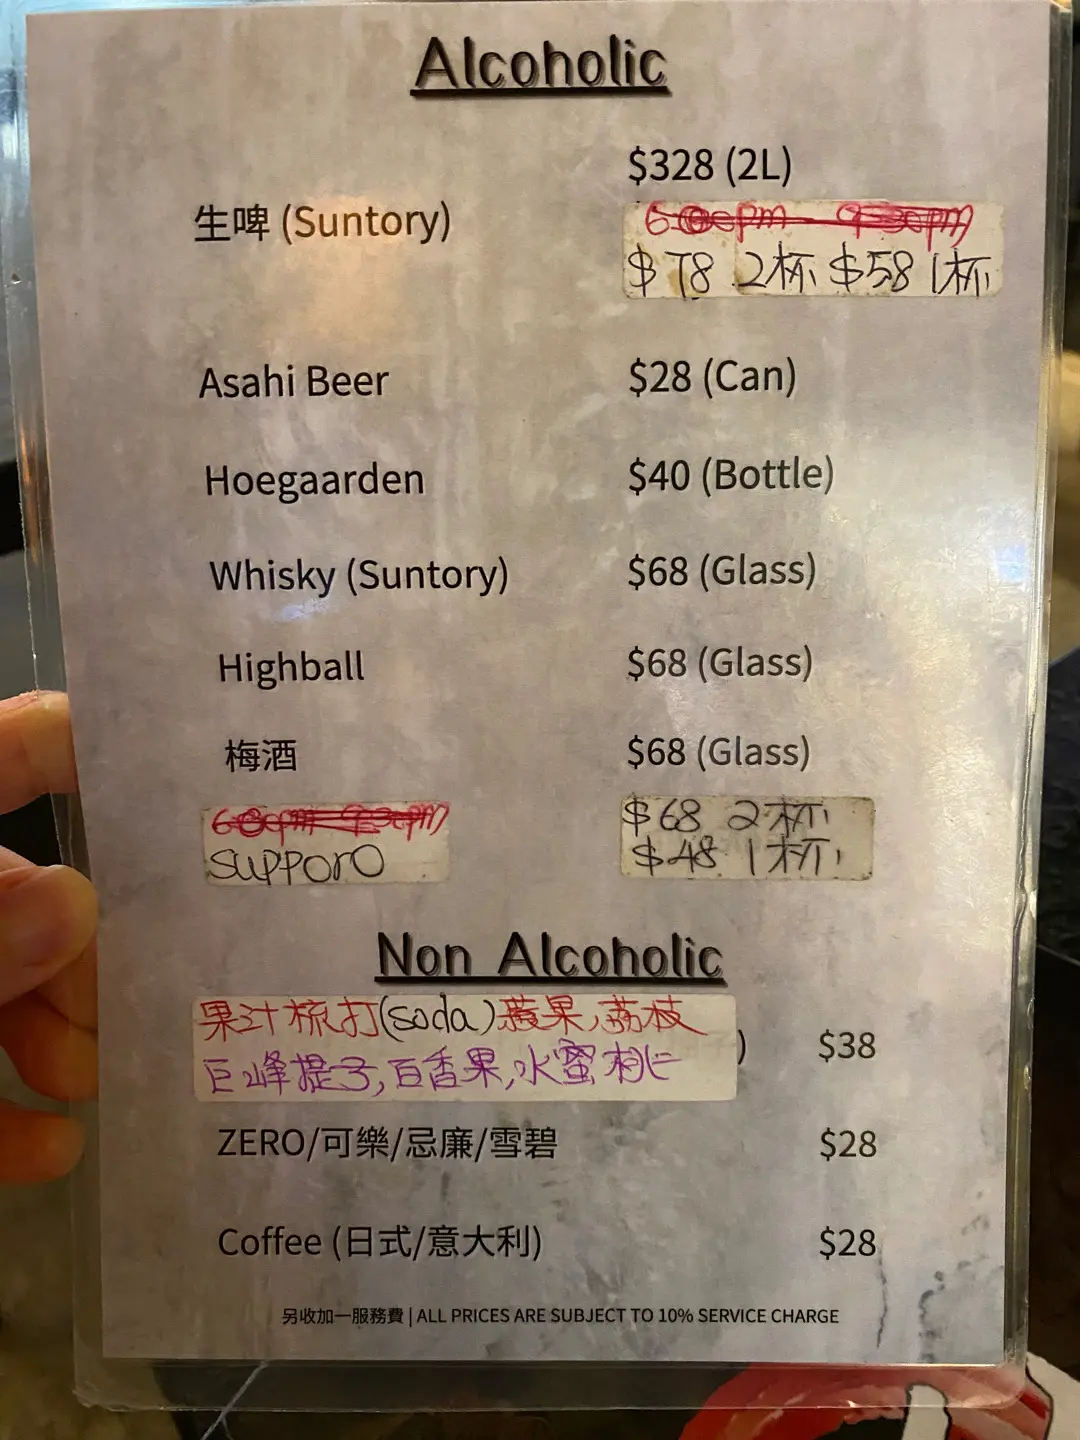 Alcoholic
$328 (2L)
生啤 (Suntory)
6:00pm - 9:30pm
$78 2杯 $58 1杯
Asahi Beer $28 (Can)
Hoegaarden $40 (Bottle)
Whisky (Suntory) $68 (Glass)
Highball $68 (Glass)
梅酒 $68 (Glass)
$68 2杯
supporo $48 1杯
Non Alcoholic
果汁梳打(soda)蘋果,荔枝
) $38
巨峰提子,百香果,水蜜桃
ZERO/可樂/忌廉/雪碧 $28
Coffee (日式/意大利) $28
另收加一服務費 | ALL PRICES ARE SUBJECT TO 10% SERVICE CHARGE